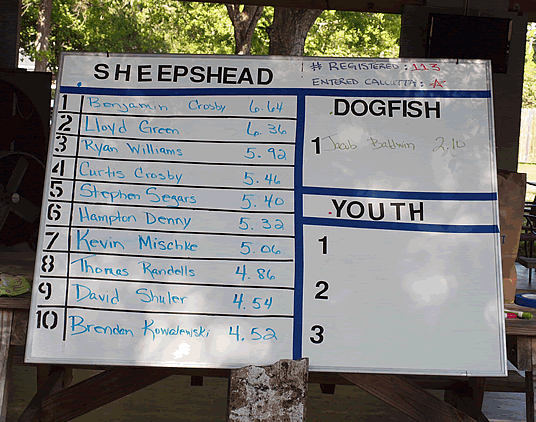 SHEEPSHEAD
# REGISTERED: 113
ENTERED CALCUTTA: A
1 Benjamin Crosby 6.64
2 Lloyd Green 6.36
3 Ryan Williams 5.92
4 Curtis Crosby 5.46
5 Stephen Segars 5.40
6 Hampton Denny 5.32
7 Kevin Mischke 5.06
8 Thomas Randells 4.86
9 David Shuler 4.54
10 Brendan Kowalewski 4.52
DOGFISH
1 Jacob Baldwin 2.10
YOUTH
1
2
3